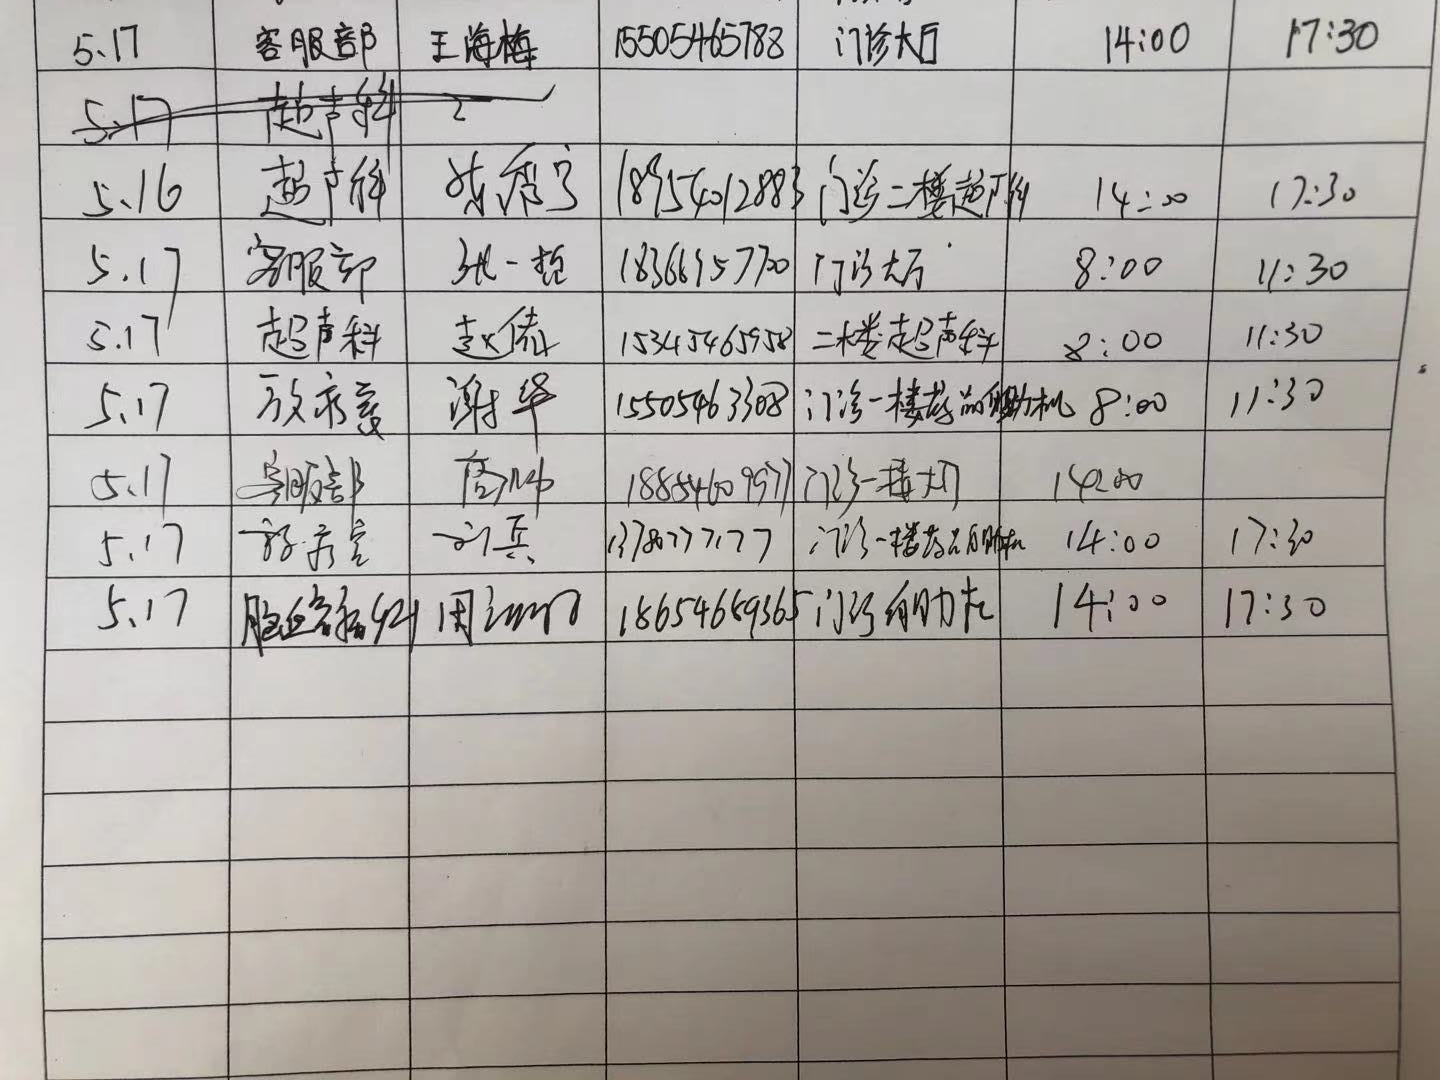 5.17 客服部 王海梅 15505465788 门诊大厅 14:00 17:30
5.17 超声科
5.16 超声科 18954012883 门诊二楼超声科 14:00 17:30
5.17 客服部 门诊大厅 8:00 11:30
5.17 超声科 赵倩 15345465958 二楼超声科 8:00 11:30
5.17 谢华 15505463308 门诊一楼药品自助机 8:00 11:30
5.17 客服部 18854609977 门诊一楼大厅 14:00
5.17 刘兵 13780777177 门诊一楼药品自助机 14:00 17:30
5.17 18654689365 门诊自助机 14:00 17:30